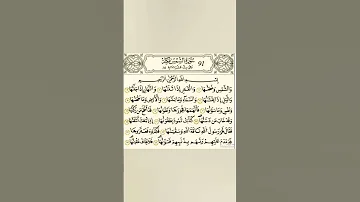 سُورَةُ الشَّمْسِ مَكِّيَّةٌ 91
بِسْمِ اللَّهِ الرَّحْمَٰنِ الرَّحِيمِ
وَالشَّمْسِ وَضُحَاهَا وَالْقَمَرِ إِذَا تَلَاهَا وَالنَّهَارِ إِذَا جَلَّاهَا
وَاللَّيْلِ إِذَا يَغْشَاهَا وَالسَّمَاءِ وَمَا بَنَاهَا وَالْأَرْضِ وَمَا طَحَاهَا
وَنَفْسٍ وَمَا سَوَّاهَا فَأَلْهَمَهَا فُجُورَهَا وَتَقْوَاهَا قَدْ أَفْلَحَ مَنْ زَكَّاهَا
وَقَدْ خَابَ مَنْ دَسَّاهَا كَذَّبَتْ ثَمُودُ بِطَغْوَاهَا إِذِ انْبَعَثَ أَشْقَاهَا
فَقَالَ لَهُمْ رَسُولُ اللَّهِ نَاقَةَ اللَّهِ وَسُقْيَاهَا فَكَذَّبُوهُ فَعَقَرُوهَا
فَدَمْدَمَ عَلَيْهِمْ رَبُّهُمْ بِذَنْبِهِمْ فَسَوَّاهَا وَلَا يَخَافُ عُقْبَاهَا